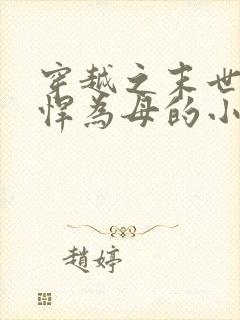 穿越之末世
悍为母的小
趙婷